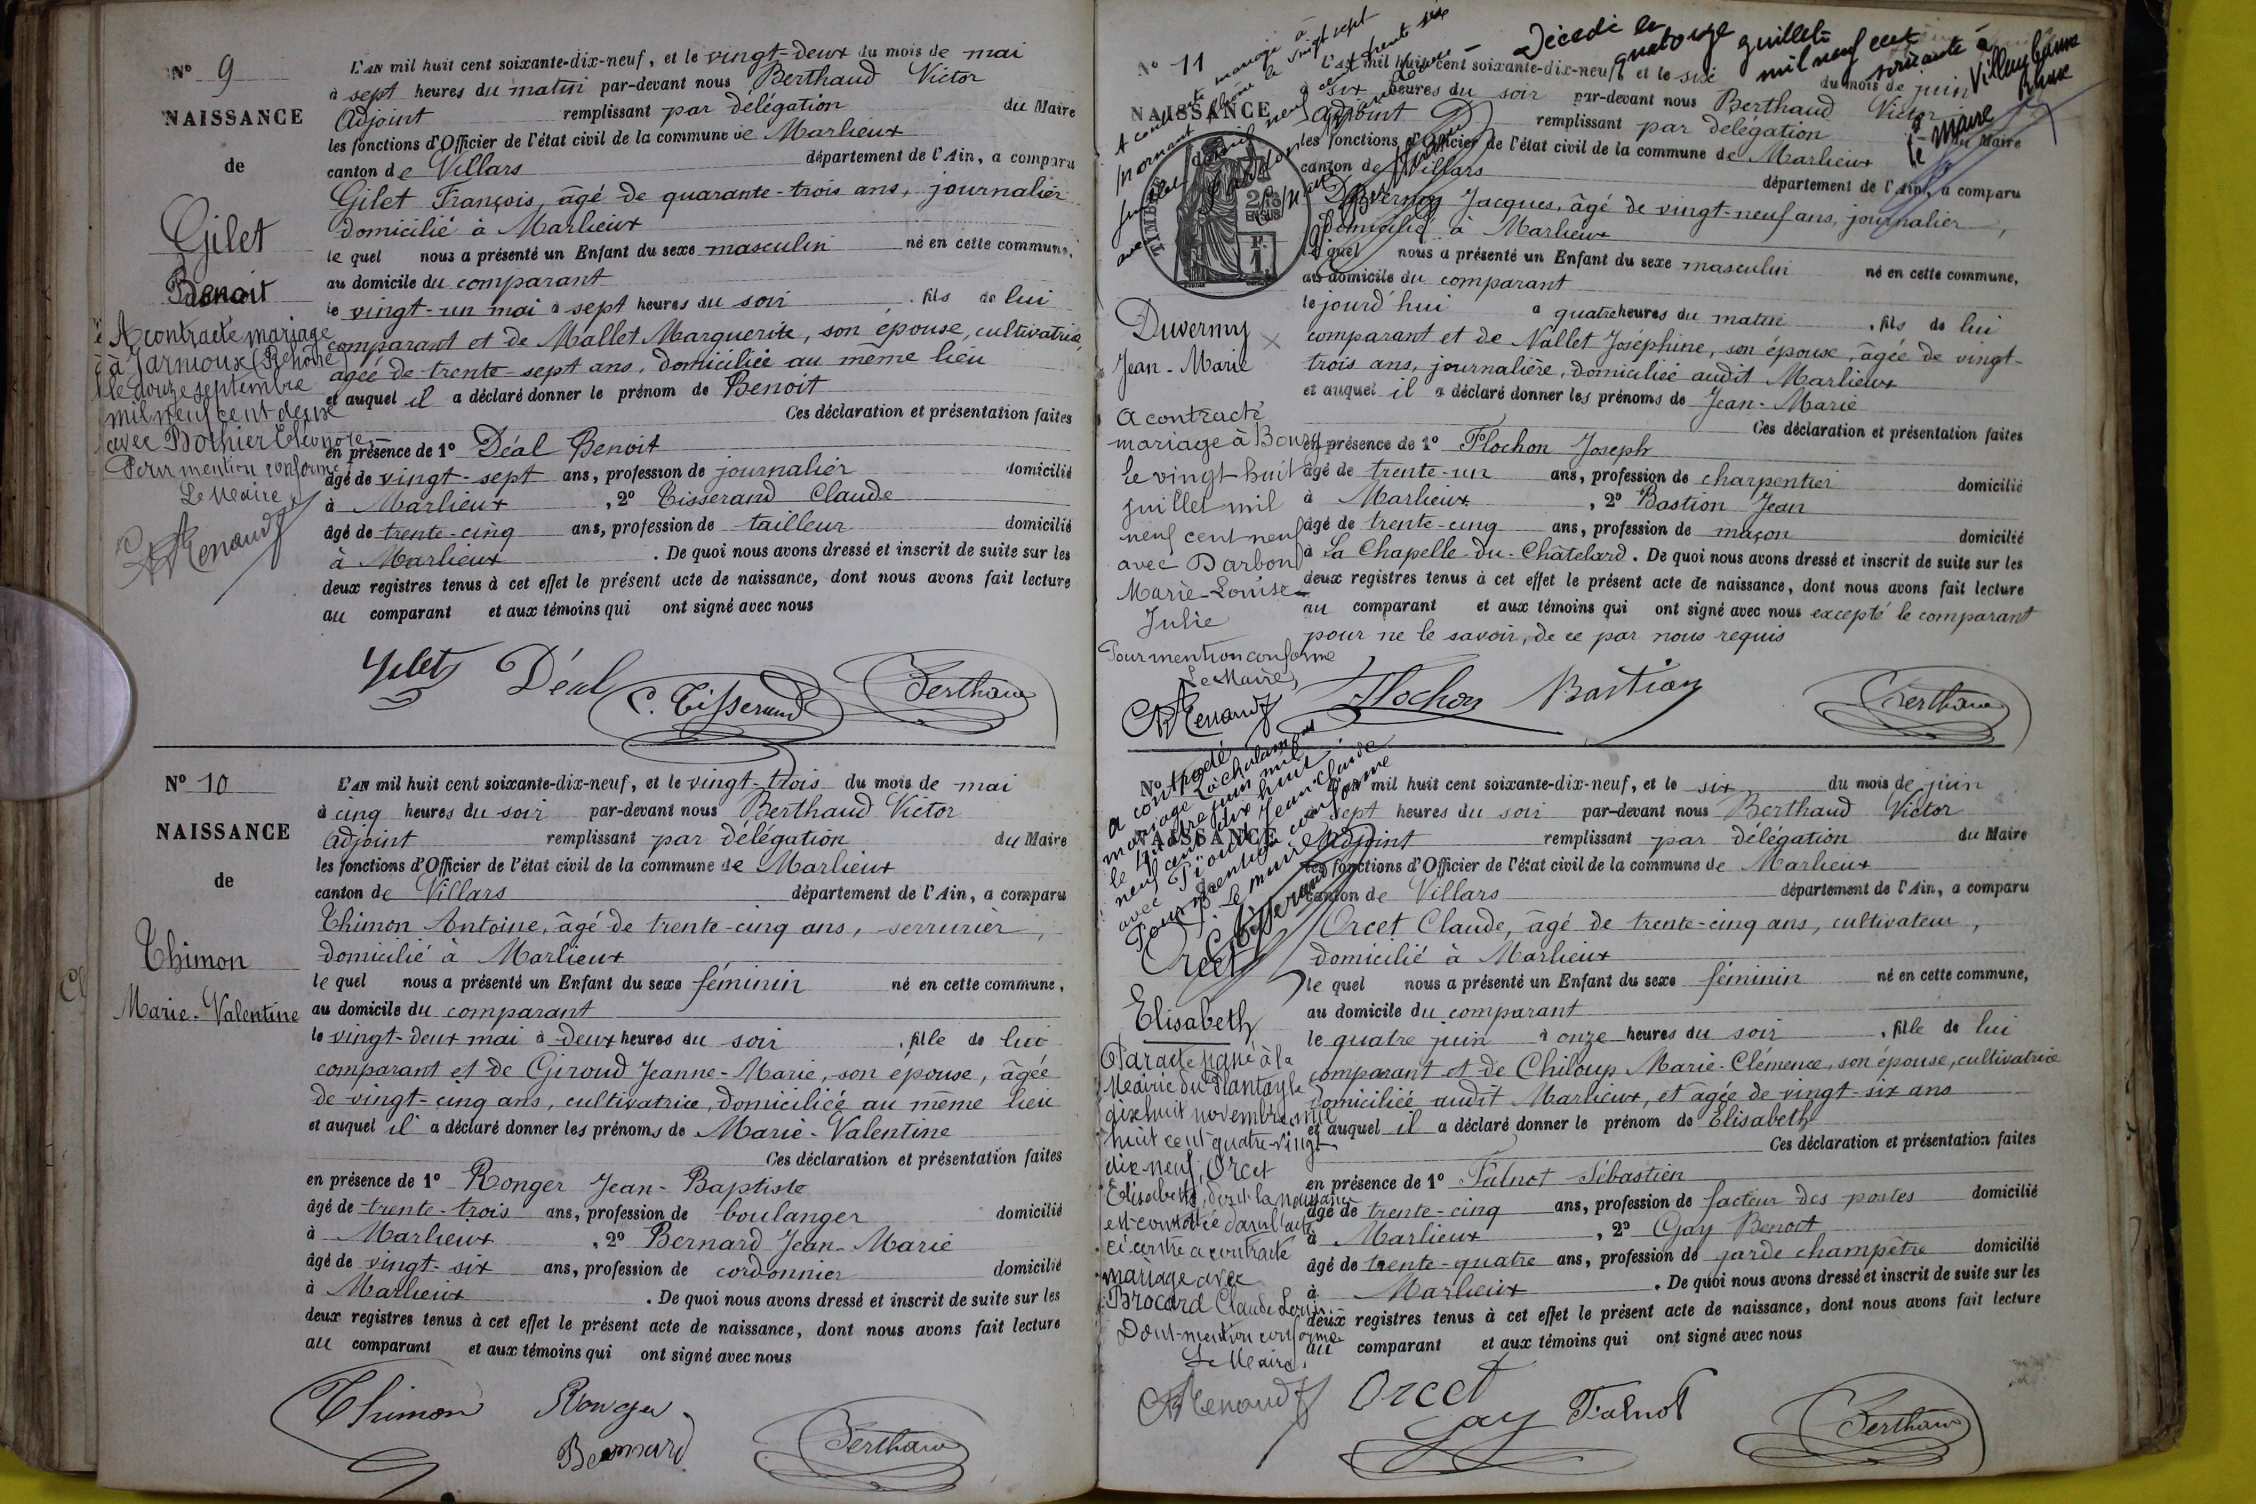 N° 9
NAISSANCE
de
Gilet
Benoit
A contracté mariage
à Jarnioux (Rhône)
le douze septembre
mil neuf cent deux
avec Bothier Eléonore
Pour mention conforme
Le Maire
Renaud
L'AN mil huit cent soixante-dix-neuf, et le vingt-deux du mois de mai
à sept heures du matin par-devant nous Berthaud Victor
Adjoint remplissant par délégation du Maire
les fonctions d'Officier de l'état civil de la commune de Marlieux
canton de Villars département de l'Ain, a comparu
Gilet François, âgé de quarante-trois ans, journalier
domicilié à Marlieux
le quel nous a présenté un Enfant du sexe masculin né en cette commune,
au domicile du comparant
le vingt-un mai à sept heures du soir, fils de lui
comparant et de Mallet Marguerite, son épouse, cultivatrice,
agée de trente-sept ans, domiciliée au même lieu
et auquel il a déclaré donner le prénom de Benoit
Ces déclaration et présentation faites
en présence de 1° Déal Benoit
âgé de vingt-sept ans, profession de journalier domicilié
à Marlieux, 2° Tisserand Claude
âgé de trente-cinq ans, profession de tailleur domicilié
à Marlieux. De quoi nous avons dressé et inscrit de suite sur les
deux registres tenus à cet effet le présent acte de naissance, dont nous avons fait lecture
au comparant et aux témoins qui ont signé avec nous
Gilet Déal C. Tisserand Berthaud
N° 10
NAISSANCE
de
Thimon
Marie-Valentine
L'AN mil huit cent soixante-dix-neuf, et le vingt-trois du mois de mai
à cinq heures du soir par-devant nous Berthaud Victor
Adjoint remplissant par délégation du Maire
les fonctions d'Officier de l'état civil de la commune de Marlieux
canton de Villars département de l'Ain, a comparu
Thimon Antoine, âgé de trente-cinq ans, serrurier,
domicilié à Marlieux
le quel nous a présenté un Enfant du sexe féminin né en cette commune,
au domicile du comparant
le vingt-deux mai à deux heures du soir, fille de lui
comparant et de Giroud Jeanne-Marie, son épouse, âgée
de vingt-cinq ans, cultivatrice, domiciliée au même lieu
et auquel il a déclaré donner les prénoms de Marie-Valentine
Ces déclaration et présentation faites
en présence de 1° Ronger Jean-Baptiste
âgé de trente-trois ans, profession de boulanger domicilié
à Marlieux, 2° Bernard Jean-Marie
âgé de vingt-six ans, profession de cordonnier domicilié
à Marlieux. De quoi nous avons dressé et inscrit de suite sur les
deux registres tenus à cet effet le présent acte de naissance, dont nous avons fait lecture
au comparant et aux témoins qui ont signé avec nous
Thimon Ronger
Bernard Berthaud
Décédé le
quatorze juillet
mil neuf cent
soixante à
Villeurbanne
Rhône
le Maire
N° 11
NAISSANCE
TIMBRE
25
Duvernay
Jean-Marie
A contracté
mariage à Bourg
le vingt-huit
juillet mil
neuf cent neuf
avec Darbon
Marie-Louise-
Julie
Pour mention conforme
Le Maire
Renaud
L'AN mil huit cent soixante-dix-neuf, et le six du mois de juin
à six heures du soir par-devant nous Berthaud Victor
Adjoint remplissant par délégation du Maire
les fonctions d'Officier de l'état civil de la commune de Marlieux
canton de Villars département de l'Ain, a comparu
Duvernay Jacques, âgé de vingt-neuf ans, journalier,
domicilié à Marlieux
le quel nous a présenté un Enfant du sexe masculin né en cette commune,
au domicile du comparant
le jourd'hui à quatre heures du matin, fils de lui
comparant et de Nallet Joséphine, son épouse, âgée de vingt-
trois ans, journalière, domiciliée audit Marlieux
et auquel il a déclaré donner les prénoms de Jean-Marie
Ces déclaration et présentation faites
en présence de 1° Flochon Joseph
âgé de trente-un ans, profession de charpentier domicilié
à Marlieux, 2° Bastion Jean
âgé de trente-cinq ans, profession de maçon domicilié
à La Chapelle-du-Châtelard. De quoi nous avons dressé et inscrit de suite sur les
deux registres tenus à cet effet le présent acte de naissance, dont nous avons fait lecture
au comparant et aux témoins qui ont signé avec nous excepté le comparant
pour ne le savoir, de ce par nous requis
Flochon Bastion Berthaud
N°
NAISSANCE
A contracté
mariage à
le quatre juin mil
neuf cent dix huit
avec Jean Claude
Pour mention conforme
Le maire
Tisserand
Orcet
Elisabeth
Par acte signé à la
Mairie du Plantay le
dix huit novembre mil
huit cent quatre-vingt
dix neuf, Orcet
Elisabeth, dont la naissance
est constatée dans l'acte
ci contre a contracté
mariage avec
Brocard Claude Louis.
Dont mention conforme
Le Maire,
Renaud
L'AN mil huit cent soixante-dix-neuf, et le six du mois de juin
à sept heures du soir par-devant nous Berthaud Victor
Adjoint remplissant par délégation du Maire
les fonctions d'Officier de l'état civil de la commune de Marlieux
canton de Villars département de l'Ain, a comparu
Orcet Claude, âgé de trente-cinq ans, cultivateur,
domicilié à Marlieux
le quel nous a présenté un Enfant du sexe féminin né en cette commune,
au domicile du comparant
le quatre juin à onze heures du soir, fille de lui
comparant et de Chiloup Marie-Clémence, son épouse, cultivatrice
domiciliée audit Marlieux, et âgée de vingt-six ans
et auquel il a déclaré donner le prénom de Elisabeth
Ces déclaration et présentation faites
en présence de 1° Falnot Sébastien
âgé de trente-cinq ans, profession de facteur des postes domicilié
à Marlieux, 2° Gay Benoit
âgé de trente-quatre ans, profession de garde champêtre domicilié
à Marlieux. De quoi nous avons dressé et inscrit de suite sur les
deux registres tenus à cet effet le présent acte de naissance, dont nous avons fait lecture
au comparant et aux témoins qui ont signé avec nous
Orcet Gay Falnot Berthaud